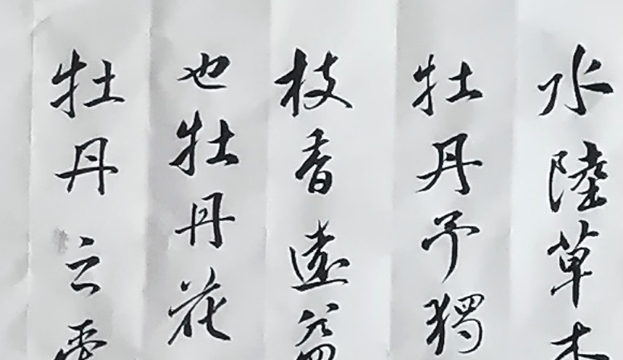 水陸草木
牡丹予獨
枝香遠益
也牡丹花
牡丹之愛